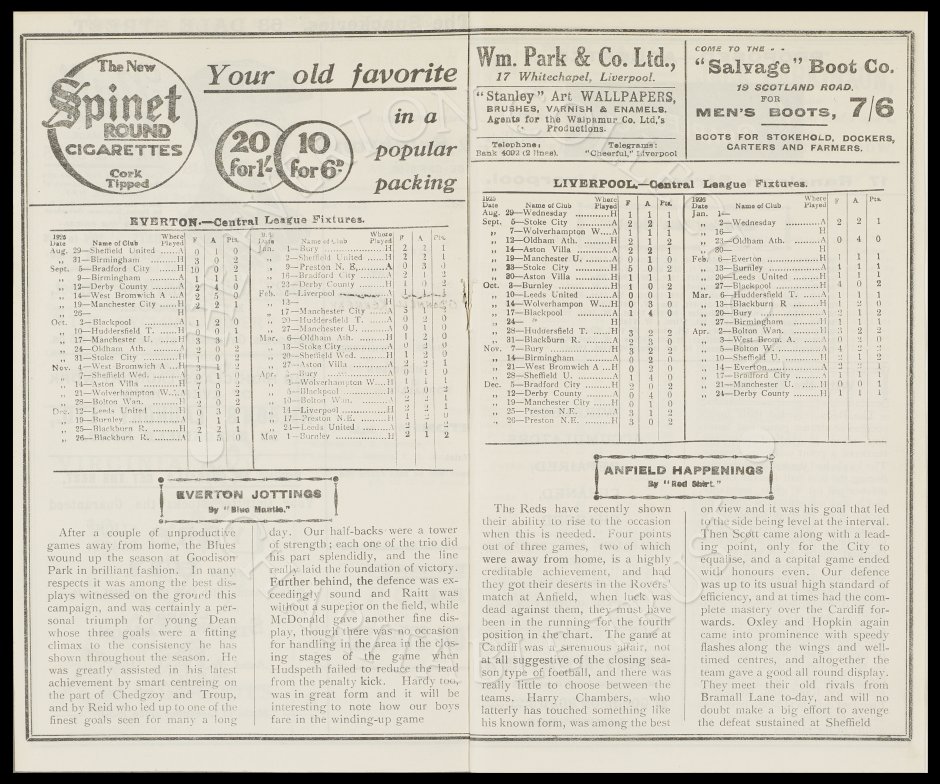 The New
Spinet
ROUND
CIGARETTES
Cork
Tipped
Your old favorite
in a
popular
packing
20
for 1/-
10
for 6D
Wm. Park & Co. Ltd.,
17 Whitechapel, Liverpool.
"Stanley" Art WALLPAPERS,
BRUSHES, VARNISH & ENAMELS.
Agents for the Walpamur Co. Ltd,'s
Productions.
Telephone: Telegrams:
Bank 4092 (2 lines). "Cheerful," Liverpool
COME TO THE - -
"Salvage" Boot Co.
19 SCOTLAND ROAD.
FOR
MEN'S BOOTS, 7/6
BOOTS FOR STOKEHOLD, DOCKERS,
CARTERS AND FARMERS.
EVERTON.—Central League Fixtures.
1925 Where
Date Name of Club Played F A Pts.
Aug. 29—Sheffield United H 0 1 0
„ 31—Birmingham H 3 0 2
Sept. 5—Bradford City H 10 0 2
„ 9—Birmingham A 1 1 1
„ 12—Derby County A 2 4 0
„ 14—West Bromwich A A 2 5 0
„ 19—Manchester City H 2 2 1
„ 26— H
Oct. 2—Blackpool A 1 2 0
„ 10—Huddersfield T. H 0 0 1
„ 17—Manchester U. H 3 3 1
„ 24—Oldham Ath. A 2 0 2
„ 31—Stoke City H 1 0 2
Nov. 4—West Bromwich A H 3 1 2
„ 7—Sheffield Wed. A 1 1 1
„ 14—Aston Villa H 7 0 2
„ 21—Wolverhampton W. A 1 0 2
„ 28—Bolton Wan. H 2 0 2
Dec. 12—Leeds United H 0 3 0
„ 19—Burnley A 1 1 1
„ 25—Blackburn R. H 2 2 1
„ 26—Blackburn R. A 1 5 0
Date Name of Club Where Played F A Pts.
Jan. 1—Bury H 2 2 1
„ 2—Sheffield United A 2 2 1
„ 9—Preston N. E. A 0 3 0
„ 16—Bradford City A
„ 23—Derby County H 1 0 2
Feb. 6—Liverpool
„ 13— H
„ 17—Manchester City A 5 1 2
„ 20—Huddersfield T. A 0 2 0
„ 27—Manchester U. A 0 1 0
Mar. 6—Oldham Ath. H 1 0 2
„ 13—Stoke City A 0 2 0
„ 20—Sheffield Wed. H 1 2 0
„ 27—Aston Villa A 2 2 1
Apr. —Bury A 0 1 0
„ 3—Wolverhampton W. H 1 1 1
„ 5—Blackpool H 3 0 2
„ 10—Bolton Wan. A 2 2 1
„ 14—Liverpool H 2 2 1
„ 17—Preston N.E. H 1 2 0
„ 24—Leeds United A 2 1 2
May 1—Burnley H 2 1 2
LIVERPOOL.—Central League Fixtures.
1925 Where
Date Name of Club Played F A Pts.
Aug. 29—Wednesday H 1 1 1
Sept. 5—Stoke City A 2 2 1
„ 7—Wolverhampton W. A 1 1 1
„ 12—Oldham Ath. H 2 1 2
„ 14—Aston Villa A 2 2 1
„ 19—Manchester U. A 0 1 0
„ 23—Stoke City H 5 0 2
„ 30—Aston Villa H 1 1 1
Oct. 3—Burnley H 1 0 2
„ 10—Leeds United A 0 0 1
„ 14—Wolverhampton W. H 0 3 0
„ 17—Blackpool A 1 4 0
„ 24— H
„ 28—Huddersfield T. H 3 2 2
„ 31—Blackburn R. A 2 3 0
Nov. 7—Bury H 3 2 2
„ 14—Birmingham A 0 2 0
„ 21—West Bromwich H 0 2 0
„ 28—Sheffield U. A 1 4 0
Dec. 5—Bradford City H 2 0 2
„ 12—Derby County A 0 4 0
„ 19—Manchester City H 0 1 0
„ 25—Preston N.E. A 3 1 2
„ 26—Preston N.E. H 3 0 2
1926 Where
Date Name of Club Played F A Pts.
Jan. 1—
„ 2—Wednesday A 2 2 1
„ 16— H
„ 23—Oldham Ath. A 0 4 0
„ 30— H
Feb. 6—Everton H 1 1 1
„ 13—Burnley A 1 1 1
„ 20—Leeds United H 1 1 1
„ 27—Blackpool H 4 0 2
Mar. 6—Huddersfield T. A 1 1 1
„ 13—Blackburn R. H 1 1 1
„ 20—Bury A 2 1 2
„ 27—Birmingham H 1 1 1
Apr. 2—Bolton Wan. H 3 2 2
„ 3—West Brom. A. A 0 2 0
„ 5—Bolton W. A 4 2 2
„ 10—Sheffield U. H 2 1 2
„ 14—Everton A 2 2 1
„ 17—Bradford City A 1 1 1
„ 21—Manchester U. H 0 0 1
„ 24—Derby County H 1 1 1
EVERTON JOTTINGS
By "Blue Mantle."
After a couple of unproductive
games away from home, the Blues
wound up the season at Goodison
Park in brilliant fashion. In many
respects it was among the best dis-
plays witnessed on the ground this
campaign, and was certainly a per-
sonal triumph for young Dean
whose three goals were a fitting
climax to the consistency he has
shown throughout the season. He
was greatly assisted in his latest
achievement by smart centreing on
the part of Chedgzoy and Troup,
and by Reid who led up to one of the
finest goals seen for many a long
day. Our half-backs were a tower
of strength; each one of the trio did
his part splendidly, and the line
really laid the foundation of victory.
Further behind, the defence was ex-
ceedingly sound and Raitt was
without a superior on the field, while
McDonald gave another fine dis-
play, though there was no occasion
for handling in the area in the clos-
ing stages of the game when
Hudspeth failed to reduce the lead
from the penalty kick. Hardy too,
was in great form and it will be
interesting to note how our boys
fare in the winding-up game
ANFIELD HAPPENINGS
By "Red Shirt."
The Reds have recently shown
their ability to rise to the occasion
when this is needed. Four points
out of three games, two of which
were away from home, is a highly
creditable achievement, and had
they got their deserts in the Rovers'
match at Anfield, when luck was
dead against them, they must have
been in the running for the fourth
position in the chart. The game at
Cardiff was a strenuous affair, not
at all suggestive of the closing sea-
son type of football, and there was
really little to choose between the
teams. Harry Chambers, who
latterly has touched something like
his known form, was among the best
on view and it was his goal that led
to the side being level at the interval.
Then Scott came along with a lead-
ing point, only for the City to
equalise, and a capital game ended
with honours even. Our defence
was up to its usual high standard of
efficiency, and at times had the com-
plete mastery over the Cardiff for-
wards. Oxley and Hopkin again
came into prominence with speedy
flashes along the wings and well-
timed centres, and altogether the
team gave a good all round display.
They meet their old rivals from
Bramall Lane to-day, and will no
doubt make a big effort to avenge
the defeat sustained at Sheffield